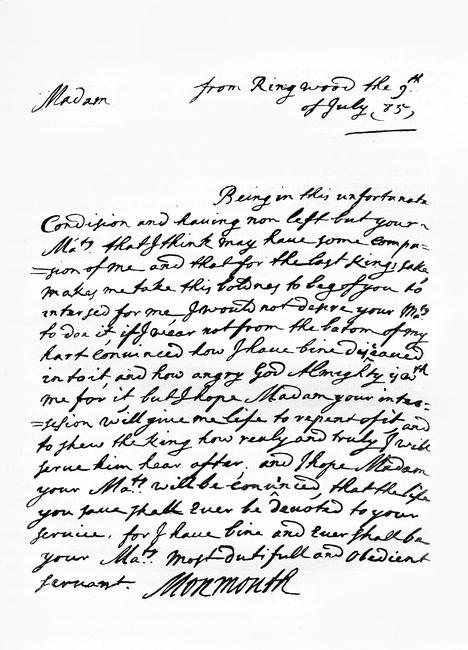 Madam
from Ringwood the 9th
of July (85)
Being in this unfortunate
Condision and having non left but your
Maty. that I think may have some compa=
=sion of me and that for the last Kings sake
makes me take this boldnes to beg of you to
intersed for me, I would not desire your Maty
to doe it, if I wear not from the botom of my
hart convinced how I have bine disceaued
into it, and how angry God Almeghty is wth
me for it but I hope Madam your inter=
=sesion will give me life to repent of it, and
to shew the King how realy and truly I will
serve him hear after. and I hope Madam
your Maty. will be convinced, that the life
you save shall Ever be devoted to your
service, for I have bine and Ever shall be
your Maty. most dutifull and obedient
servant. Monmouth